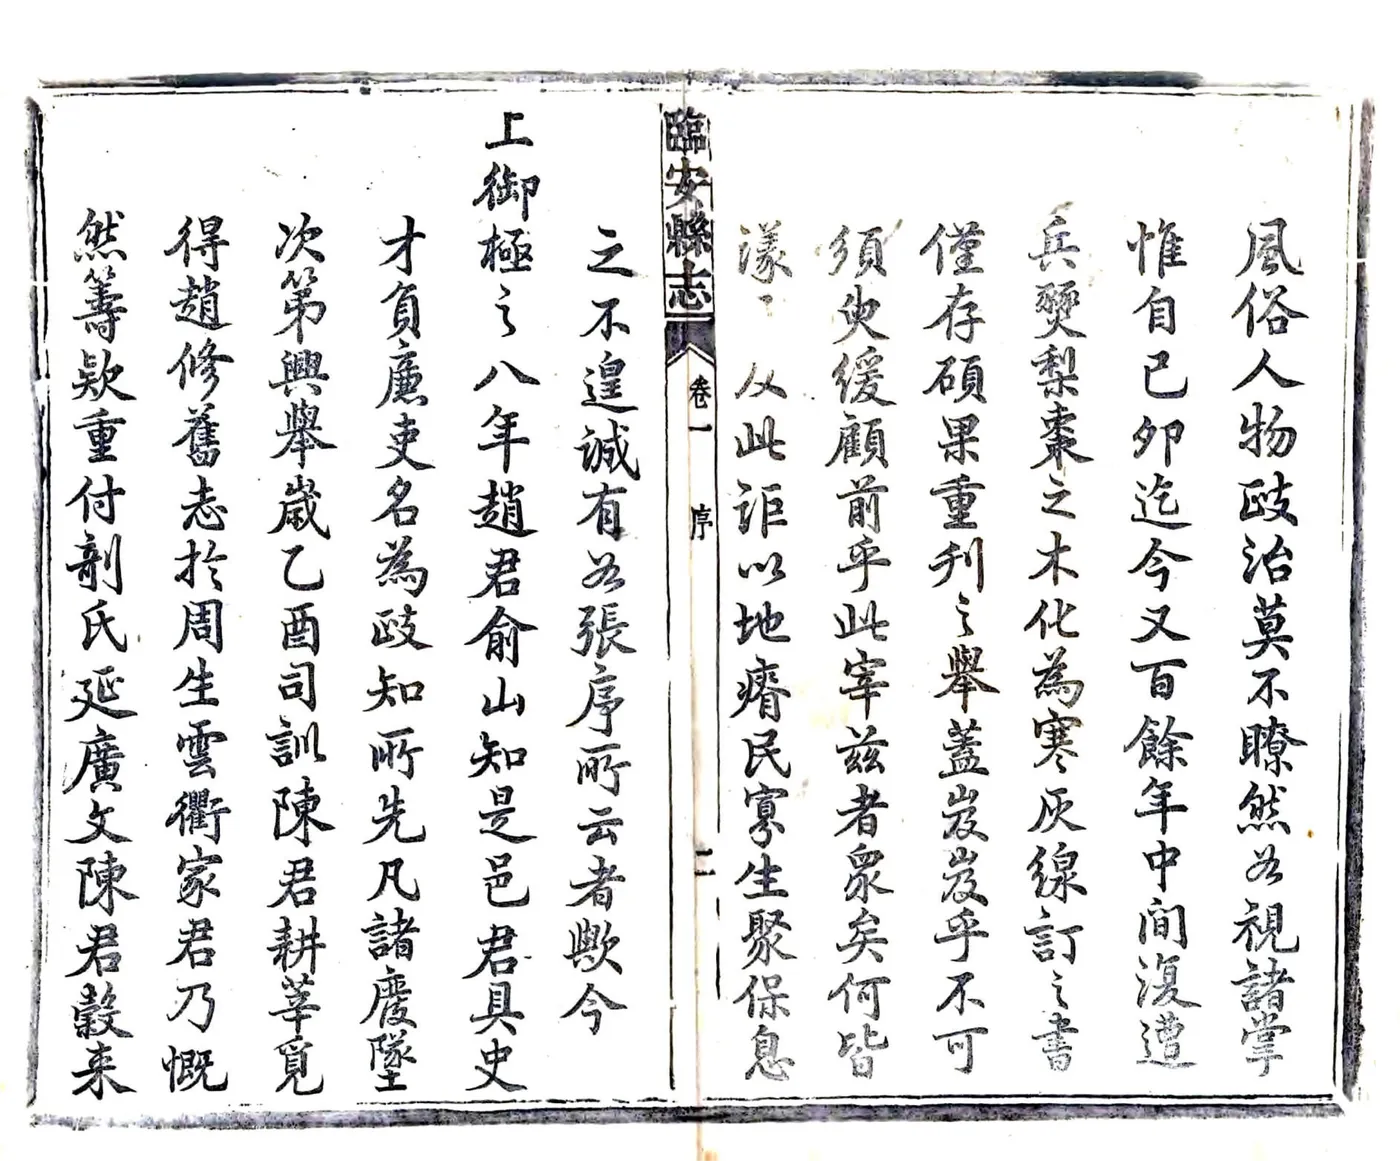 風俗人物政治莫不瞭然若視諸掌
惟自己卯迄今又百餘年中间復遭
兵燹梨棗之木化為寒灰線訂之書
僅存碩果重刋之舉蓋岌岌乎不可
須臾緩顧前乎此宰兹者衆矣何皆
漾〻以此詎以地瘠民寡生聚保息
臨安縣志
卷一
序
二
之不遑誠有若張序所云者歟今
上御極之八年趙君俞山知是邑君具史
才負廉吏名為政知所先凡諸廢墜
次第興舉歲乙酉司訓陳君耕莘覓
得趙修舊志於周生雲衢家君乃慨
然籌欵重付剞氏延廣文陳君穀来